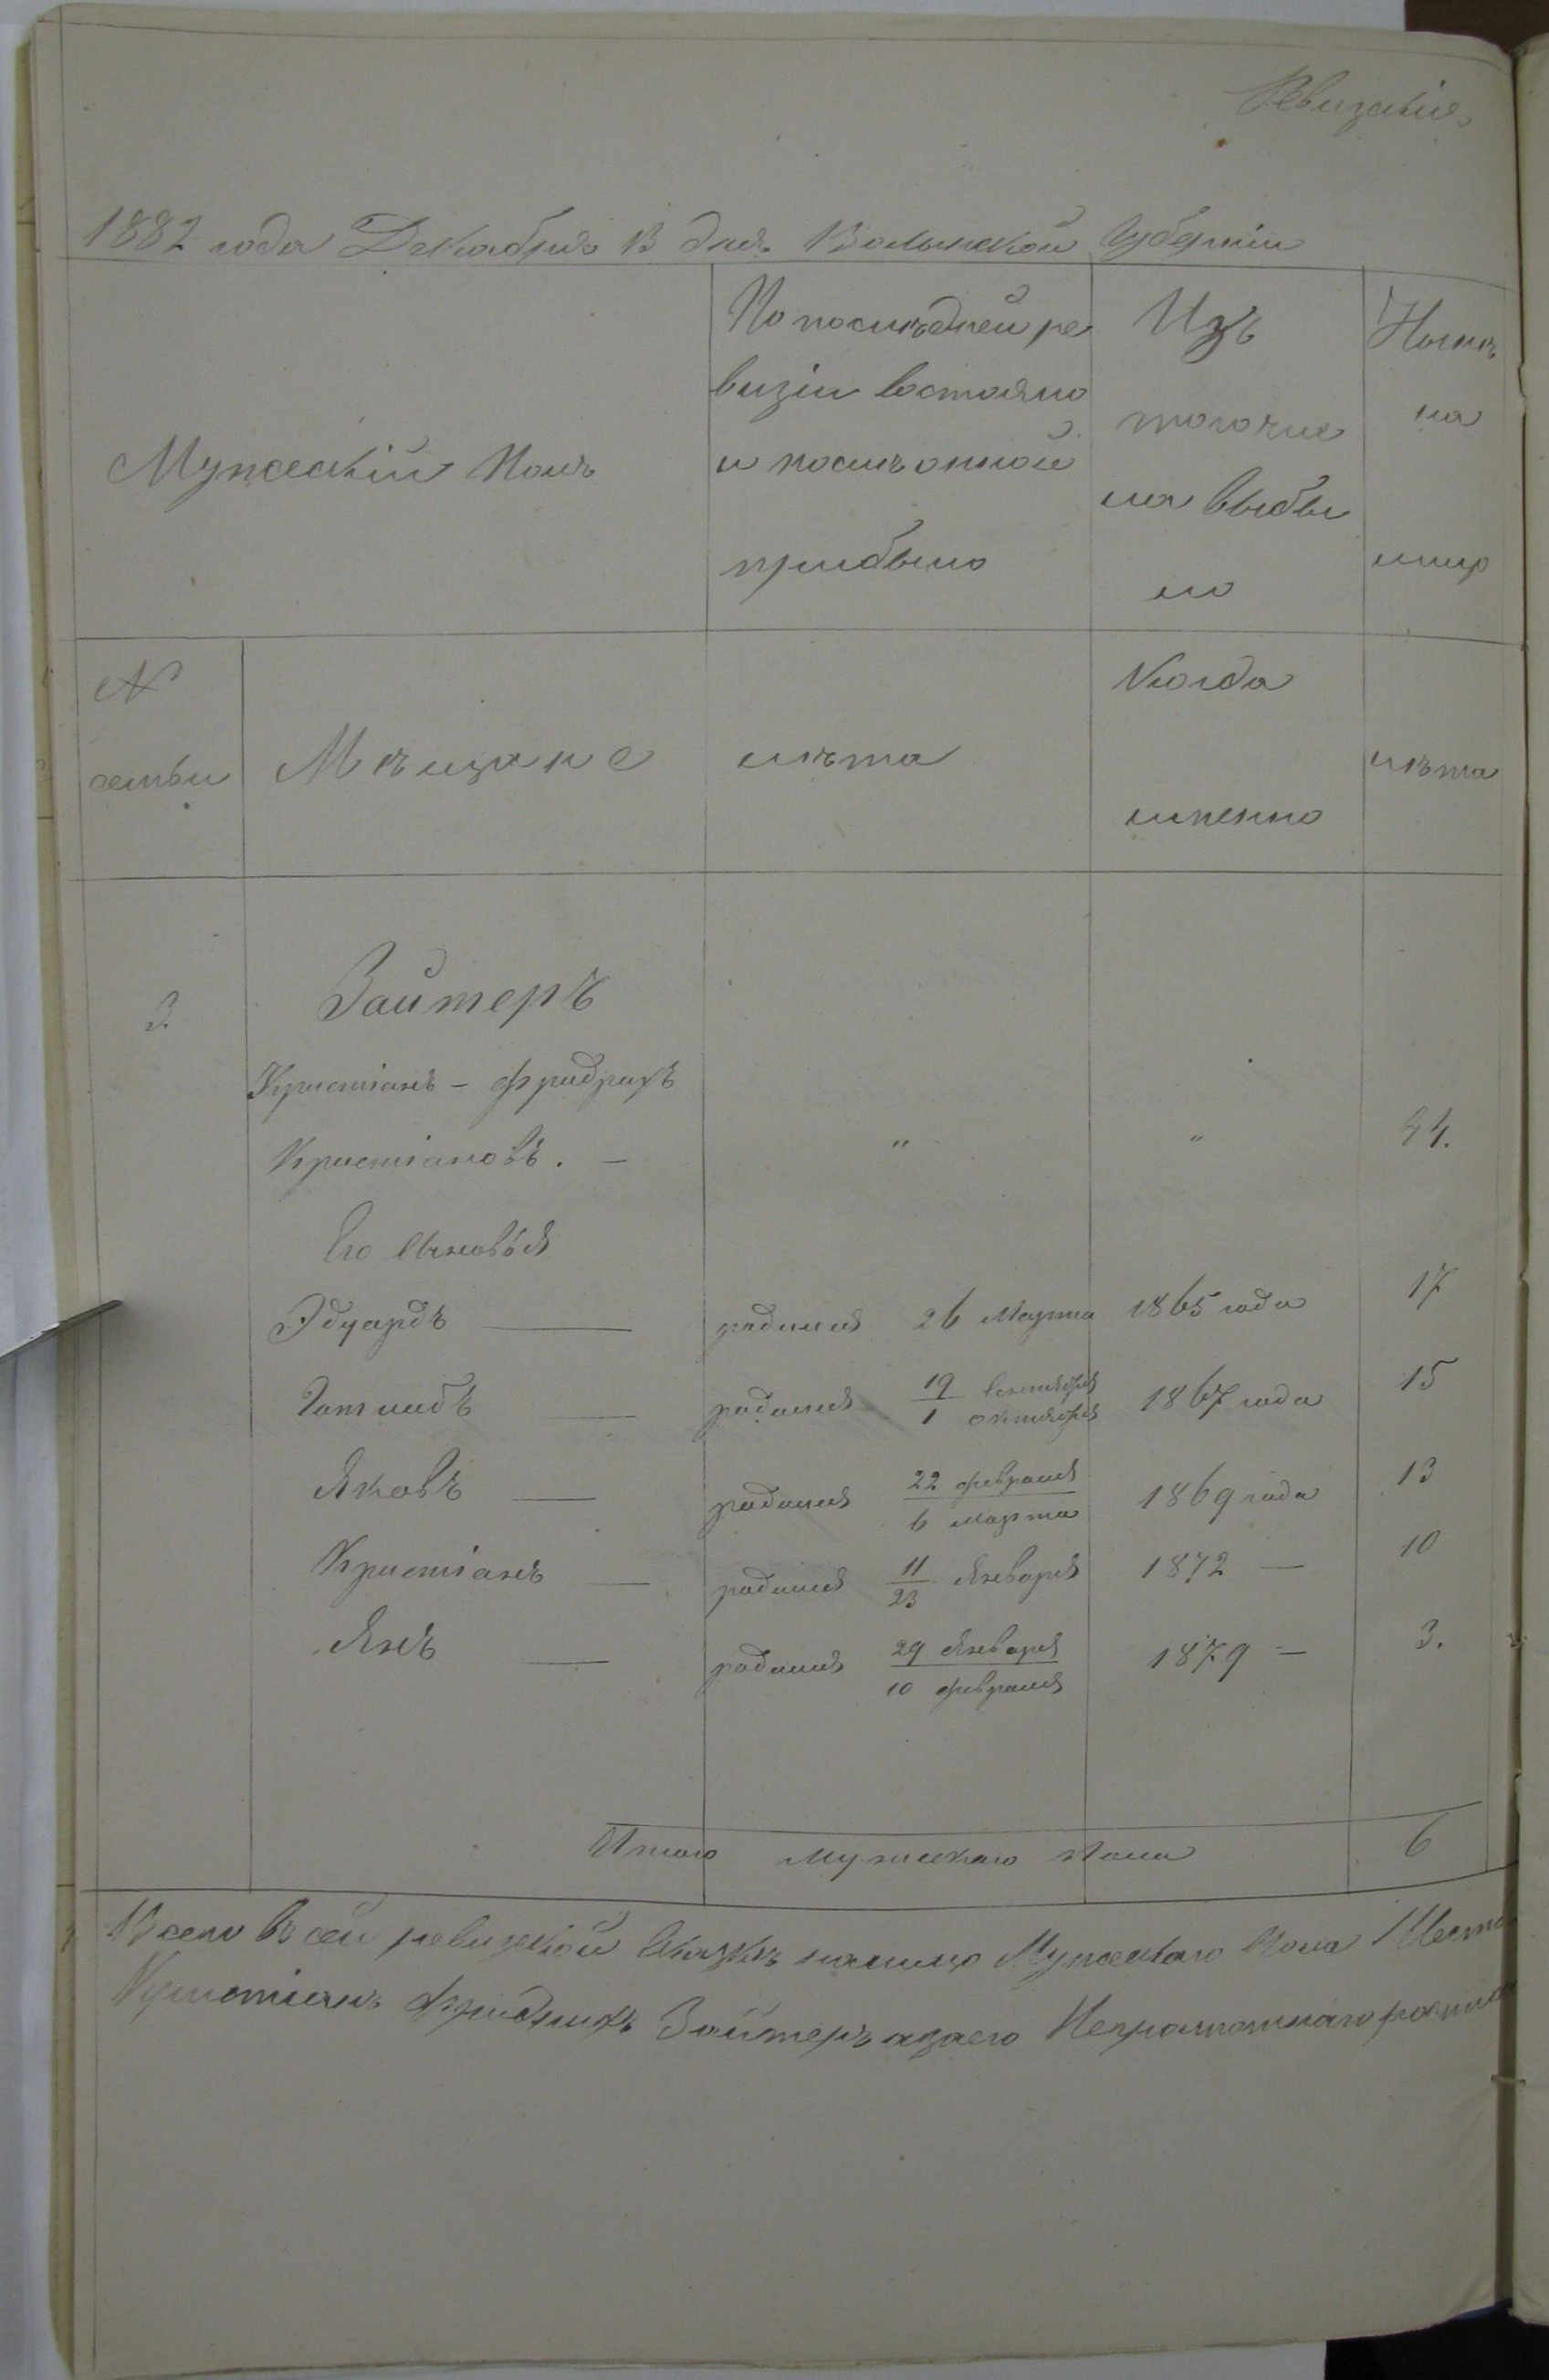 Ревизская
1882 года Декабря 13 дня Волынской Губернии
Мужескій Полъ
По послѣдней ре
визіи состояло
и послѣ оной
прибыло
Изъ
того чис
ла выбы
ло
Нынѣ
на
лицо
№
семьи
Мѣщане
лѣта
Когда
именно
лѣта
3.
Зайтеръ
Кристіанъ - Фридрихъ
Кристіановъ. — " " 44.
Его сыновья
Эдуардъ — родился 26 Марта 1865 года 17
Готлибъ — родился 19 сентября / 1 октября 1867 года 15
Яковъ — родился 22 февраля / 6 марта 1869 года 13
Кристіанъ — родился 11 / 23 Января 1872 — 10
Янъ — родился 29 Января / 10 февраля 1879 — 3.
Итого мужескаго пола 6
Всего въ сей ревизской сказкѣ налицо Мужескаго пола
Кристіанъ Фридрихъ Зайтеръ а за его Неграмотнаго